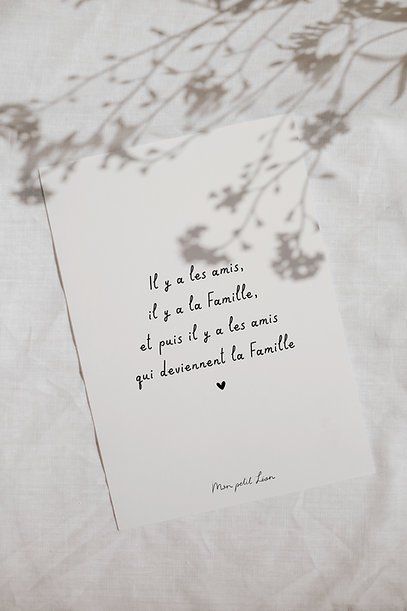 Il y a les amis,
il y a la Famille,
et puis il y a les amis
qui deviennent la Famille
Mon petit Léon